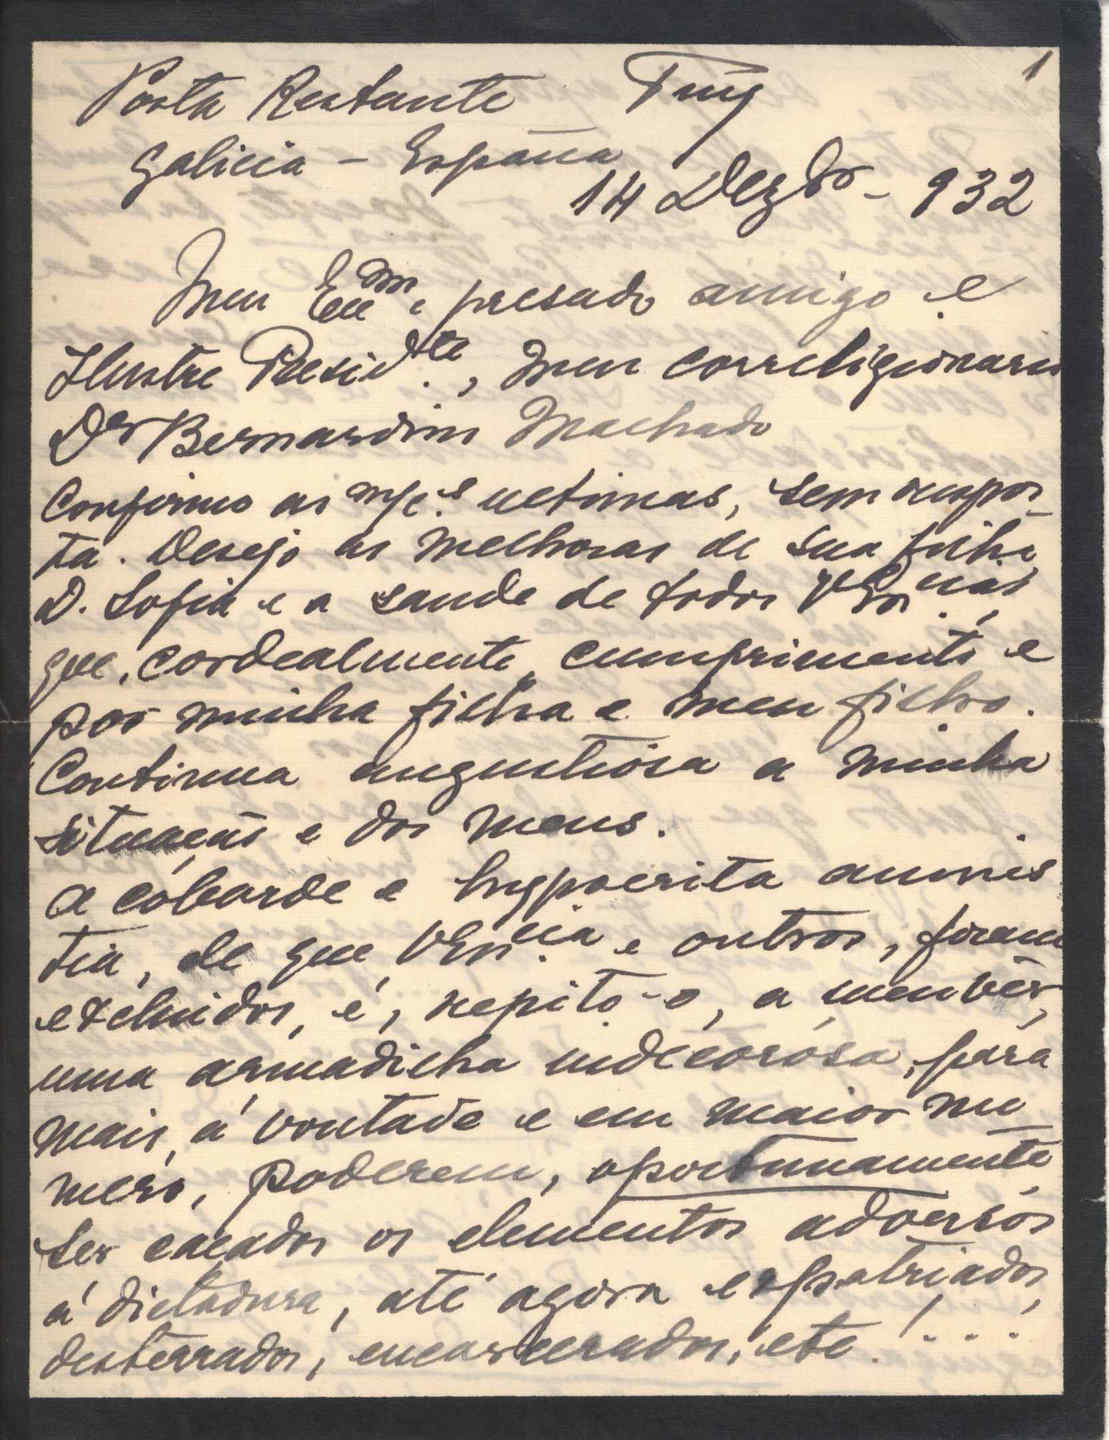 1
Posta Restante Tuy
Galicia - España
14 Dezbro - 932
Meu Exmo e presado amigo e
Ilustre Presidte., meu correligionario
Dor Bernardino Machado
Confirmo as mas. ultimas, sem respos-
ta. Desejo as melhoras de sua filha
D. Sofia e a saude de todos VExcias.,
que, cordealmente, cumprimento e
por minha filha e meu filho.
Continua angustiosa a minha
situação e dos meus.
A cobarde e hypocrita amnis
tia, de que VExcia. e outros, foram
excluidos, é, repito-o, a meu vêr,
uma armadilha indecorosa, para
mais, á vontade e em maior nu
mero, poderem, oportunamente,
ser caçados os elementos adversos
á dictadura, até agora expatriados,
desterrados, encarcerados, etc.!...